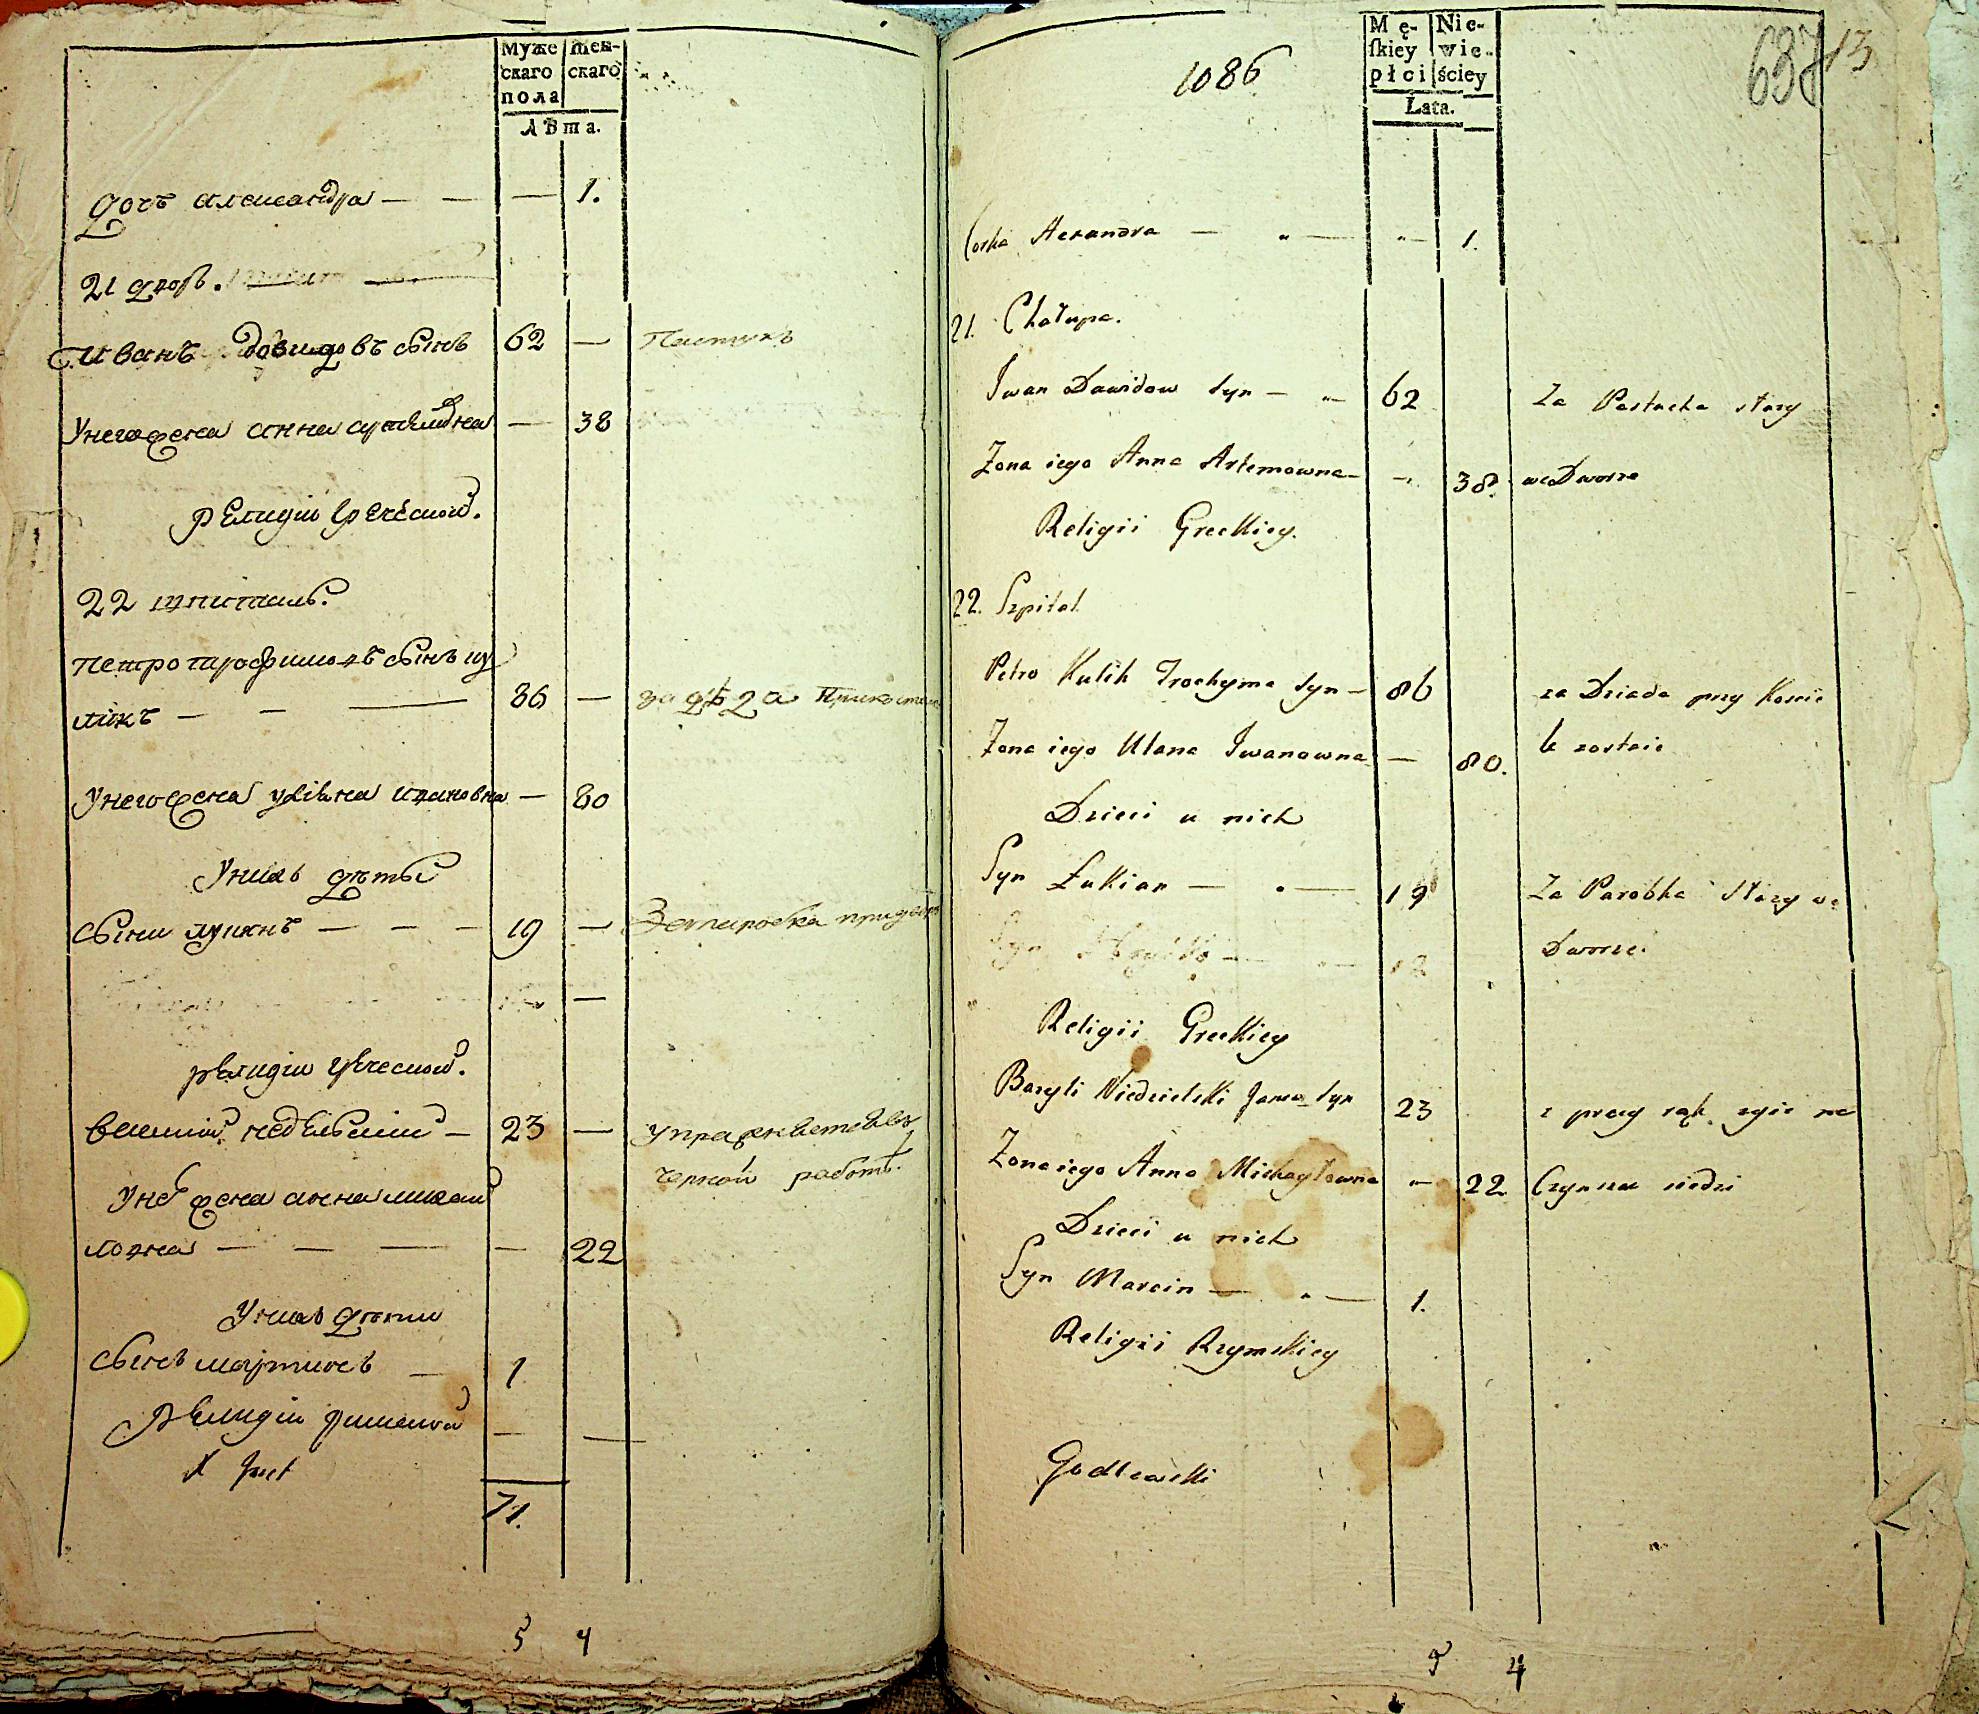 Муже
скаго
пола
жен-
скаго
Лѣта.
дочь александра — — — 1.
21 дворъ.
Иванъ довидовъ сынъ 62 — Пастухъ
Унего жена анна артемовна — 38
религіи греческой.
22 шпиталь.
петро трофимовъ сынъ ку
ликъ — — — 86 — за деда прикосте
Унего жена ульяна ивановна — 80
Унихъ дѣти
сынъ лукянъ — — — 19 — За паробка придворе
—
религіи греческой.
василий недельский — 23 — упражняется в
черной работѣ.
Унего жена анна михай
ловна — — — — 22
Унихъ дѣти
сынъ мартинъ — 1
религіи римской — —
X Just
71.
5 4
1086
637 13
Mę-
ſkiey
płci
Nie-
wie-
ściey
Lata.
Corka Alexandra — „ — „ — 1.
21. Chałupa.
Iwan Dawidow Syn — „ — 62 Za Pastucha służy
Zona iego Anna Artemowna — „ 38. we Dworze
Religii Greckiey.
22. Szpital.
Petro Kulik Trochyma Syn — 86 za Dziada przy Koscie
Zona iego Ulana Iwanowna — 80. le zostaie
Dzieci u nich
Syn Łukian — „ — 19 Za Parobka służy we
Syn — „ — 12 Dworze.
Religii Greckiey
Bazyli Niedzielski Jana Syn 23 z pracy rąk zyie na
Zona iego Anna Michayłowna „ 22. Czynszu siedzi
Dzieci u nich
Syn Marcin — „ — 1.
Religii Rzymskiey
Godlewski
5 4